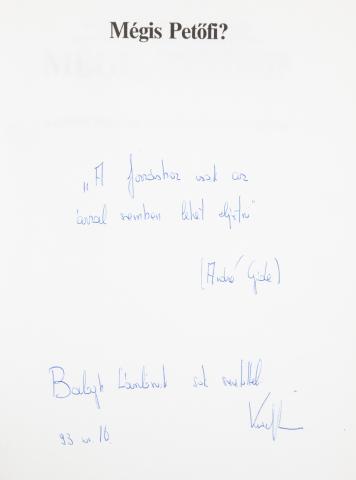 Mégis Petőfi?
„A forráshoz csak az
árral szemben lehet eljutni"
(André Gide)
Balogh sok szeretettel
93